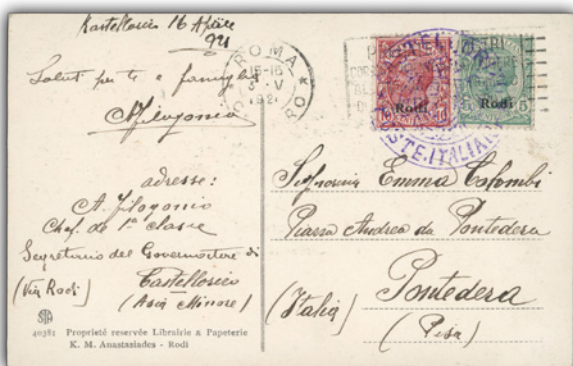 Kastellorizo 16 Aprile
921
Saluti per te e famiglia
AFilogonio
adresse:
A. Filogonio
Chef de 1ª classe
Segretario del Governatore di
Castellorizo
(Via Rodi)
(Asia Minore)
40381 Proprieté reservée Librairie & Papeterie
K. M. Anastasiades - Rodi
ROMA
15-16
3 V
192
Rodi
10
Rodi
5 5
POSTE.ITALIANE
Signorina Emma Colombi
Piazza Andrea da Pontedera
Pontedera
(Italia)
(Pisa)